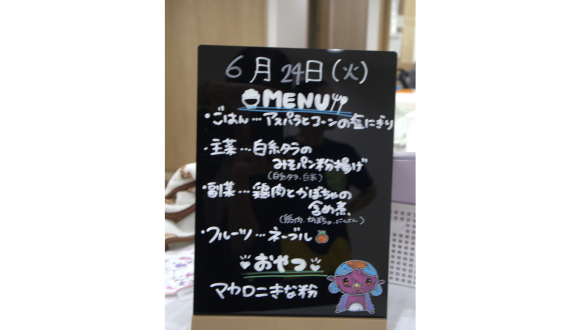 6月24日(火)
MENU
・ごはん…アスパラとコーンの塩にぎり
・主菜…白糸タラの
みそパン粉揚げ
(白糸タラ、白菜)
・副菜…鶏肉とかぼちゃの
含め煮
(鶏肉、かぼちゃ、にんじん)
・フルーツ…ネーブル
おやつ
マカロニきな粉